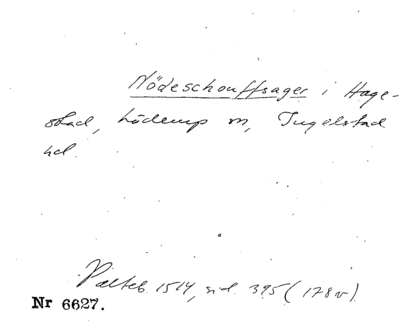 Nödeschouffsager i Hage-
stad, Löderup sn, Ingelstad
hd.
Palteb. 1514, sid. 395 (178v)
Nr 6627.